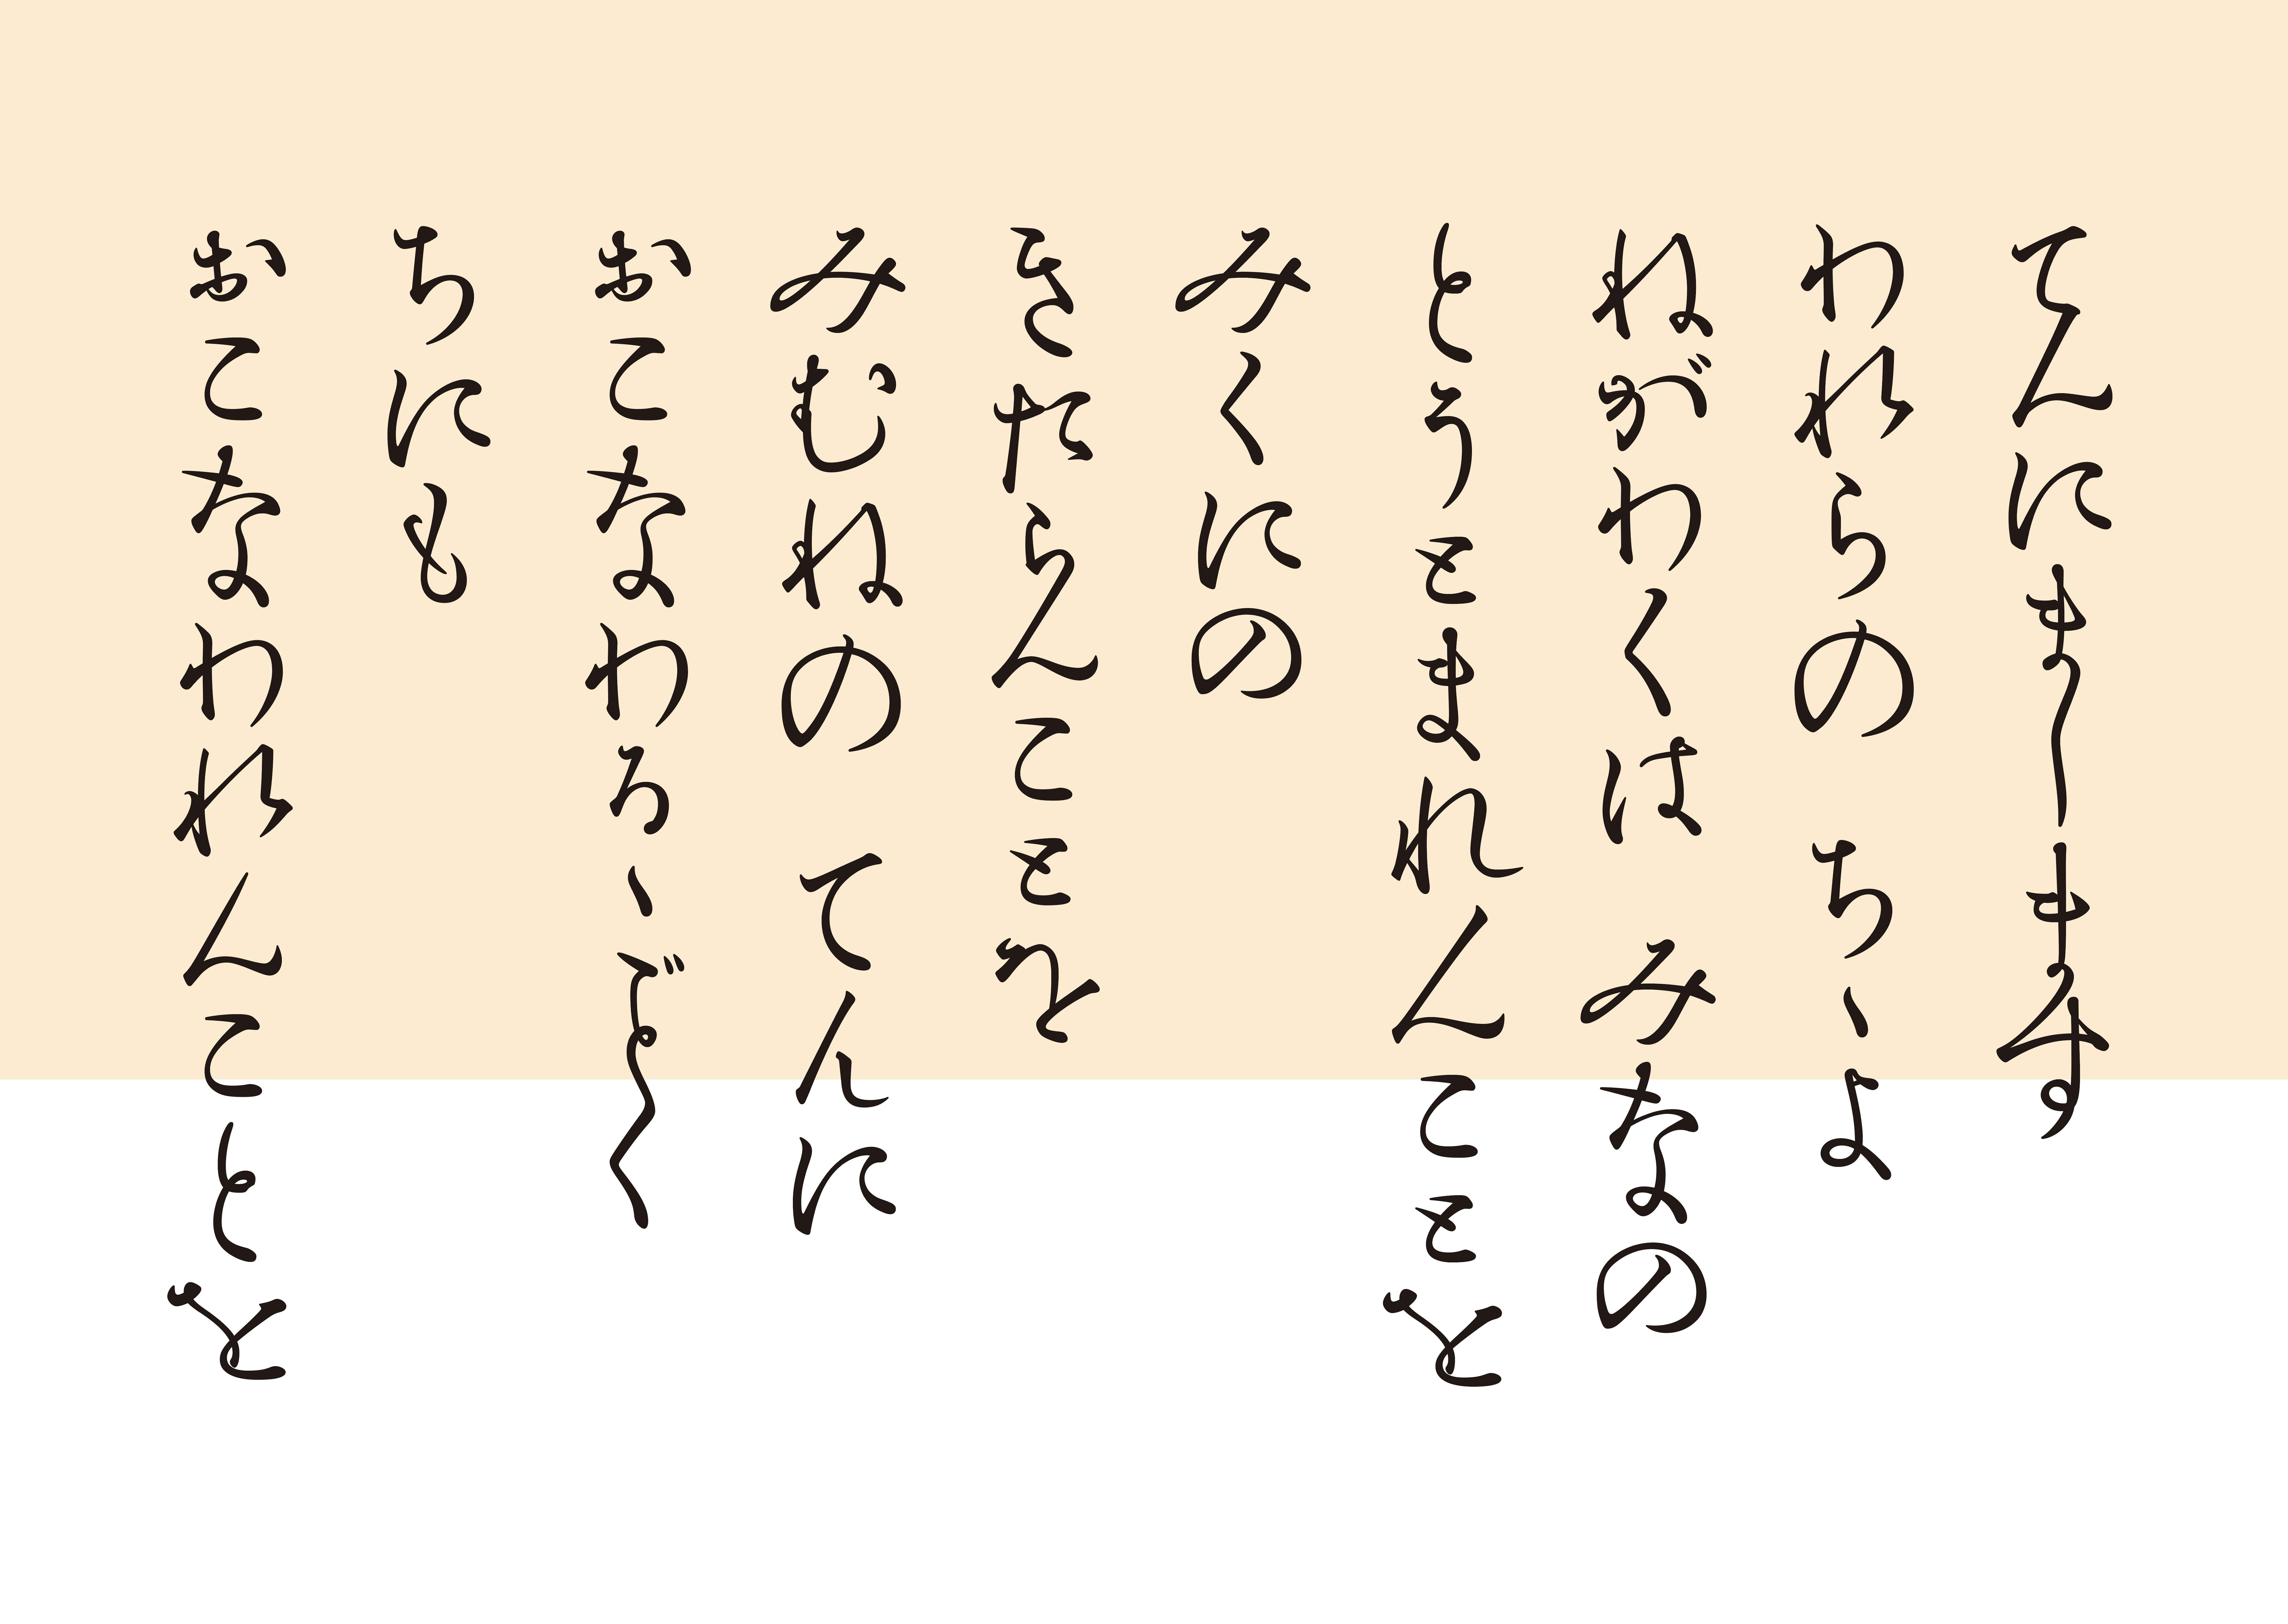 てんにまします
われらの ちゝよ
ねがわくは みなの
とうとまれんことを
みくにの
きたらんことを
みむねの てんに
おこなわるゝごとく
ちにも
おこなわれんことを